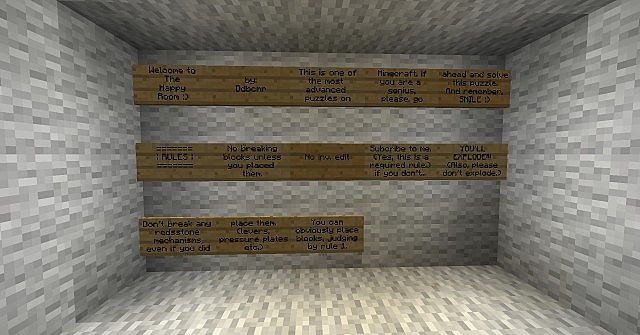 Welcome to
The
Happy
Room :)
by:
Ddbcmr
This is one of
the most
advanced
puzzles on
Minecraft. If
you are a
genius,
please, go
ahead and solve
this puzzle.
And remember,
SMILE :)
=======
| RULES |
=======
No breaking
blocks unless
you placed
them
No inv. edit
Subcribe to me.
(Yes, this is a
required rule.)
if you don't...
YOU'LL
EXPLODE!!
(Also, please
don't explode.)
Don't break any
redsstone
mechanisms
even if you did
place them.
(levers,
pressure plates
etc.)
You can
obviously place
blocks, judging
by rule 1.